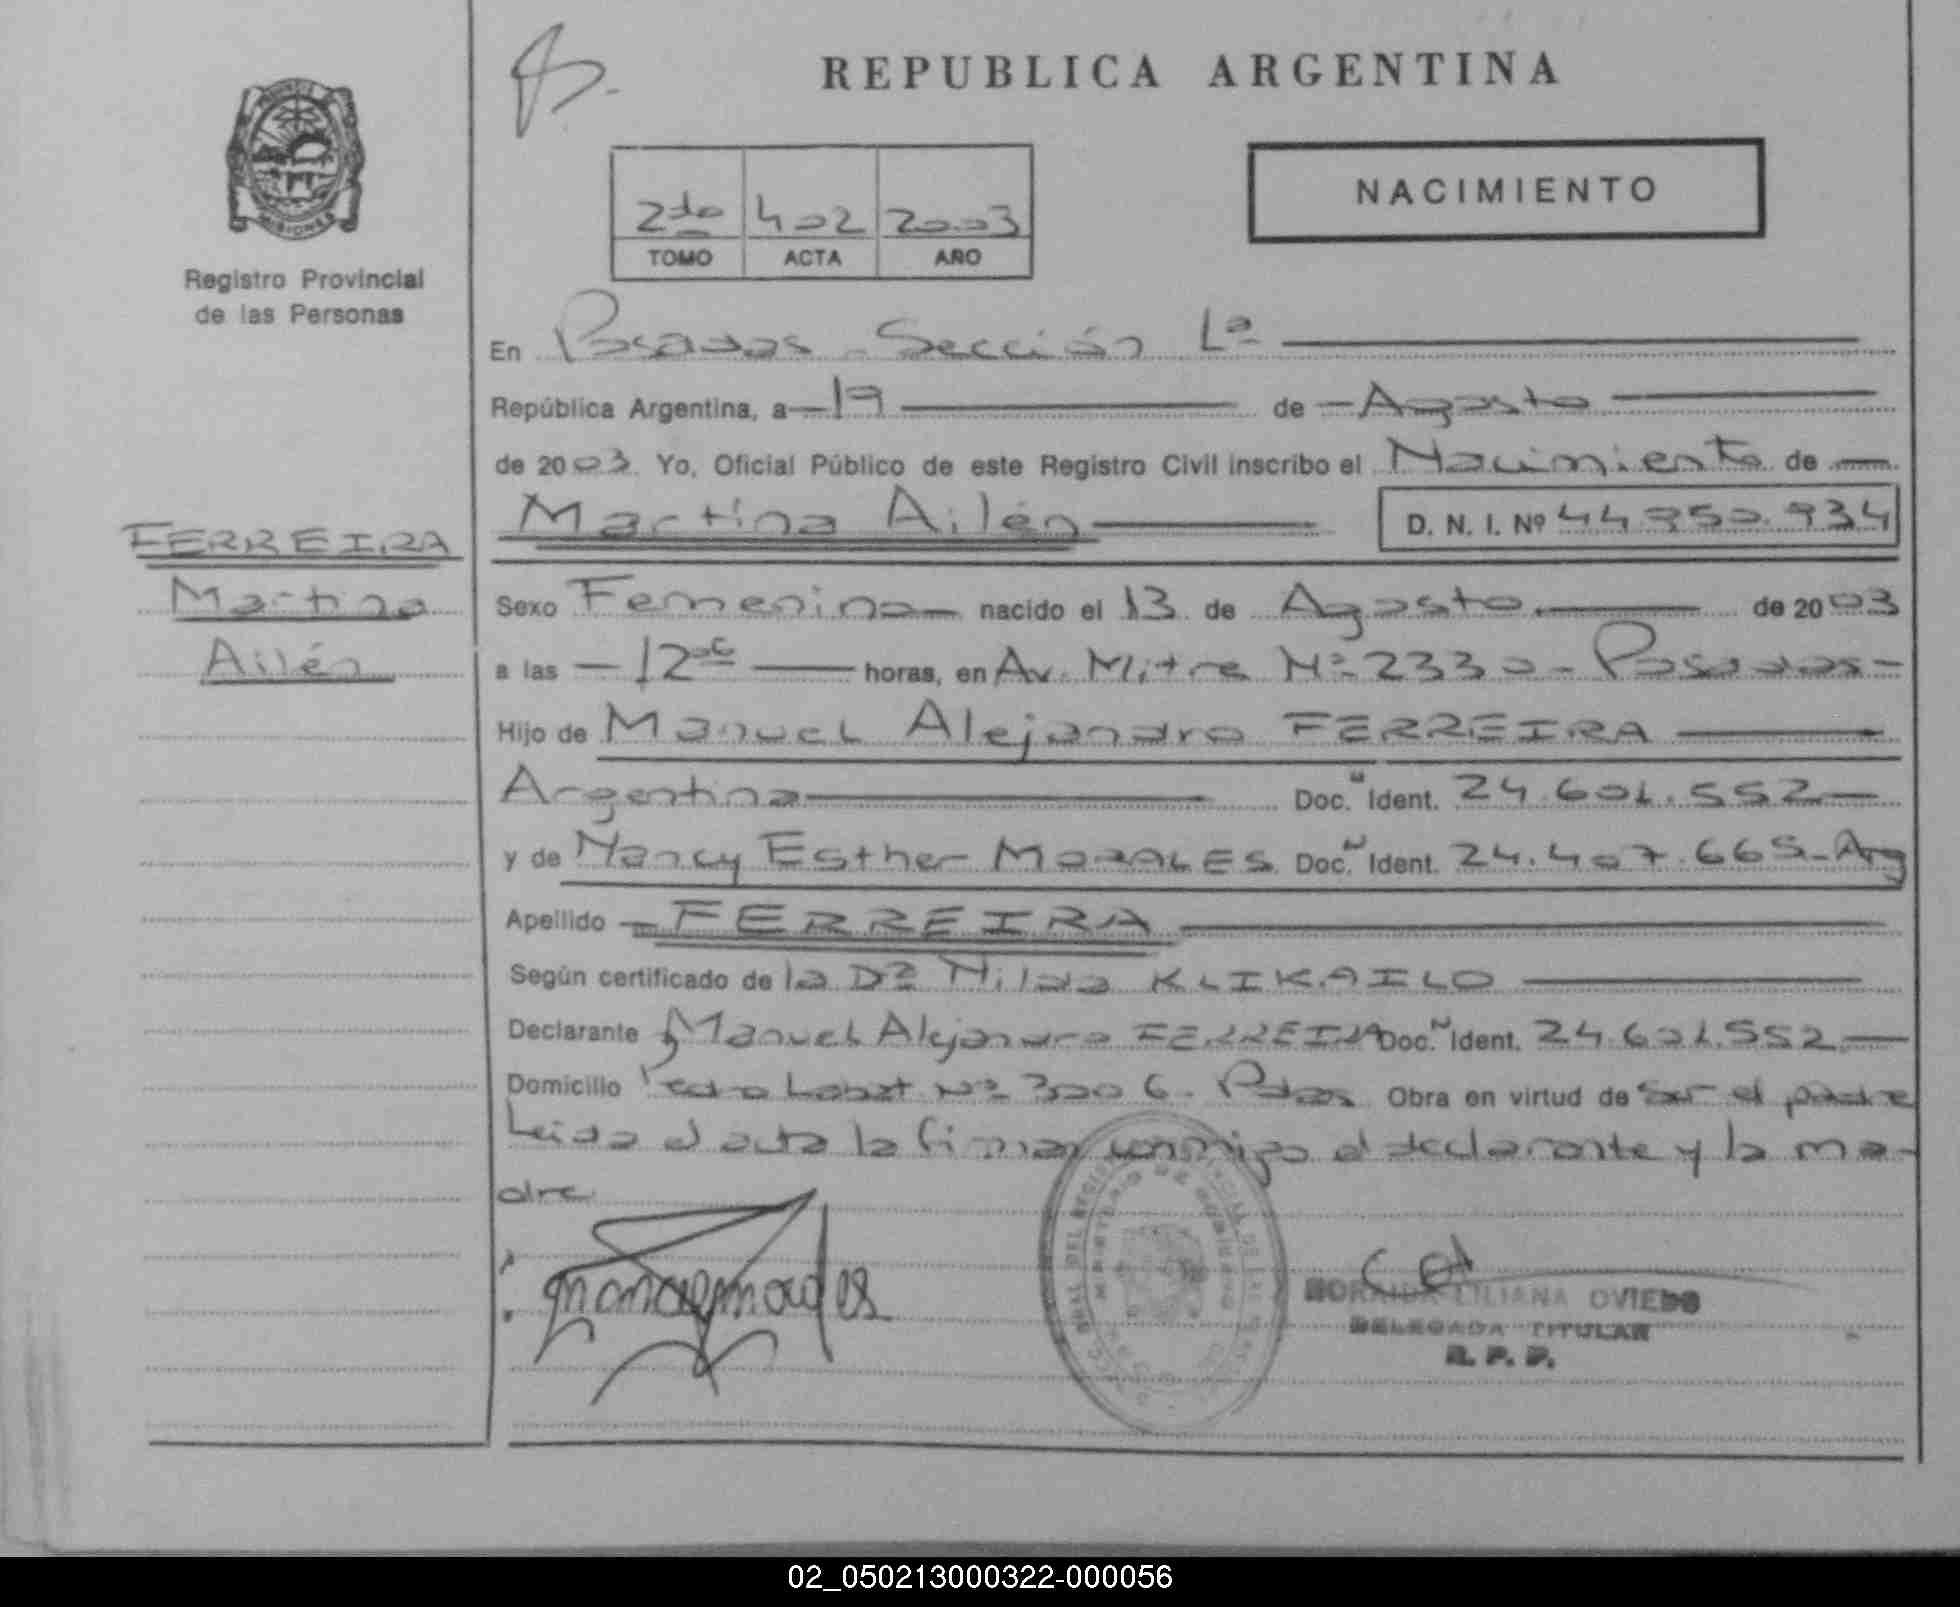 REPUBLICA ARGENTINA
MISIONES
Registro Provincial
de las Personas
2do 402 2003
TOMO ACTA AÑO
NACIMIENTO
En Posadas - Sección 1ª
República Argentina, a 19 de Agosto
de 2003. Yo, Oficial Público de este Registro Civil inscribo el Nacimiento de
Martina Ailén D. N. I. Nº 44.950.934
FERREIRA
Martina
Ailén
Sexo Femenino nacido el 13 de Agosto de 2003
a las 12 horas, en Av. Mitre Nº 2330 - Posadas -
Hijo de Manuel Alejandro FERREIRA
Argentina Doc. Ident. 24.601.552
y de Nancy Esther MORALES Doc. Ident. 24.407.665 - Arg
Apellido FERREIRA
Según certificado de la Dra Nilda KLIKAILO
Declarante Manuel Alejandro FERREIRA Doc. Ident. 24.601.552
Domicilio Pedro Labat Nº 3006 - Pdas Obra en virtud de ser el padre
Leída el acta la firman conmigo el declarante y la ma-
dre
LILIANA OVIEDO
DELEGADA TITULAR
R. P. P.
02_050213000322-000056